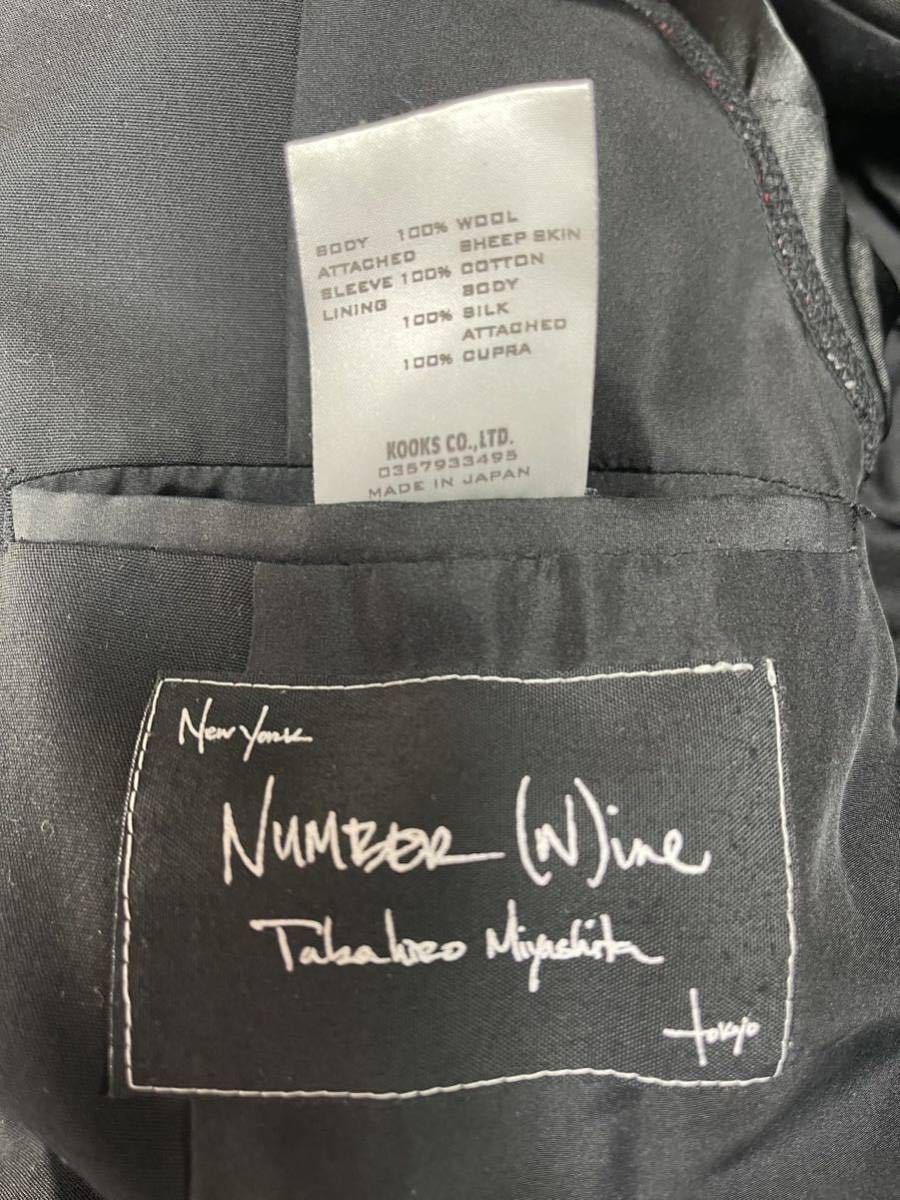 BODY 100% WOOL
ATTACHED SHEEP SKIN
SLEEVE 100% COTTON
LINING BODY
100% SILK
ATTACHED
100% CUPRA
KOOKS CO.,LTD.
0357933495
MADE IN JAPAN
New York
NUMBER (N)ine
Takahiro Miyashita
tokyo